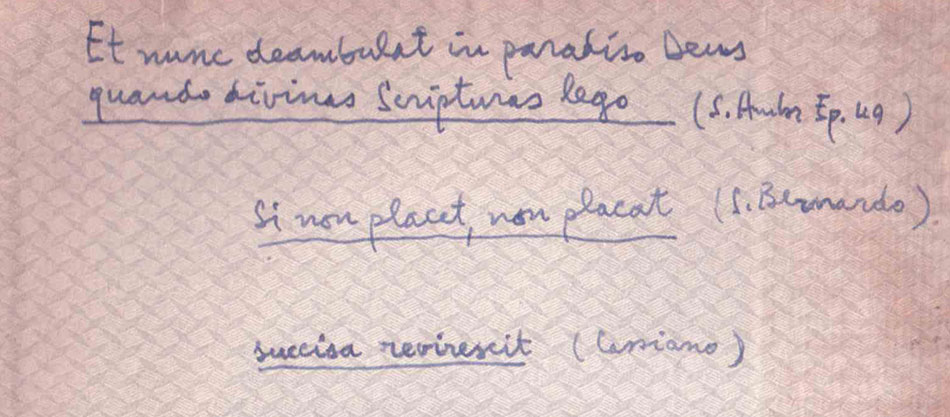 Et nunc deambulat in paradiso Deus
quando divinas Scripturas lego (S. Ambr Ep. 49)
Si non placet, non placat (S. Bernardo).
succisa revirescit (Cassiano)